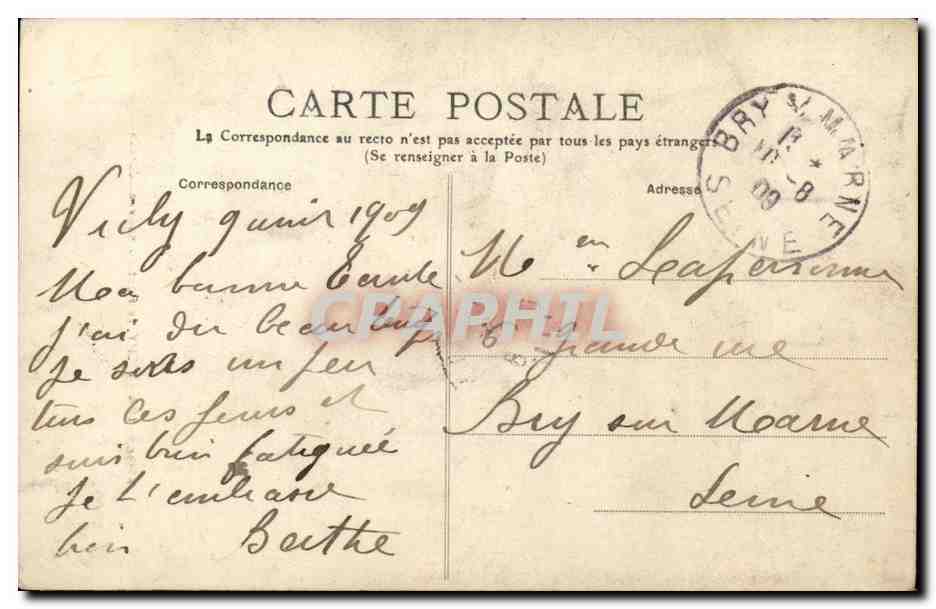 CARTE POSTALE
La Correspondance au recto n'est pas acceptée par tous les pays étrangers
(Se renseigner à la Poste)
Correspondance
Adresse
BRY S. MARNE
SEINE
09
Vichy 9 1909
Ma bonne Tante
j'ai du beau
Je un peu
tous ces jours et
suis bien fatiguée
Je t'embrasse
bien Berthe
Lapersonne
6 Grande rue
Bry sur Marne
Seine
CPAPHIL